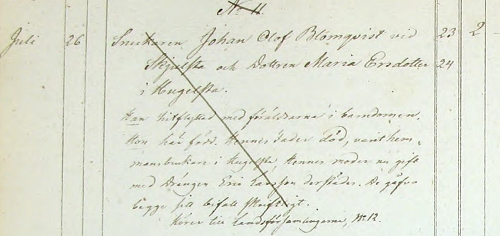 No 11.
Juli 26 Snickaren Johan Olof Blomqvist vid 23 2
Skjulsta och Dottren Maria Ersdotter 24
i Hugelsta.
Han hitflyttad med föräldrarna i barndomen.
Hon här född. Hennes fader död, varit hem-
mansbrukare i Hugelsta. Hennes moder nu gift
med Drängen Eric Larsson derstädes. De gåfvo
begge sitt bifall skriftligt.
Hörer till Landsförsamlingarne, No 12.